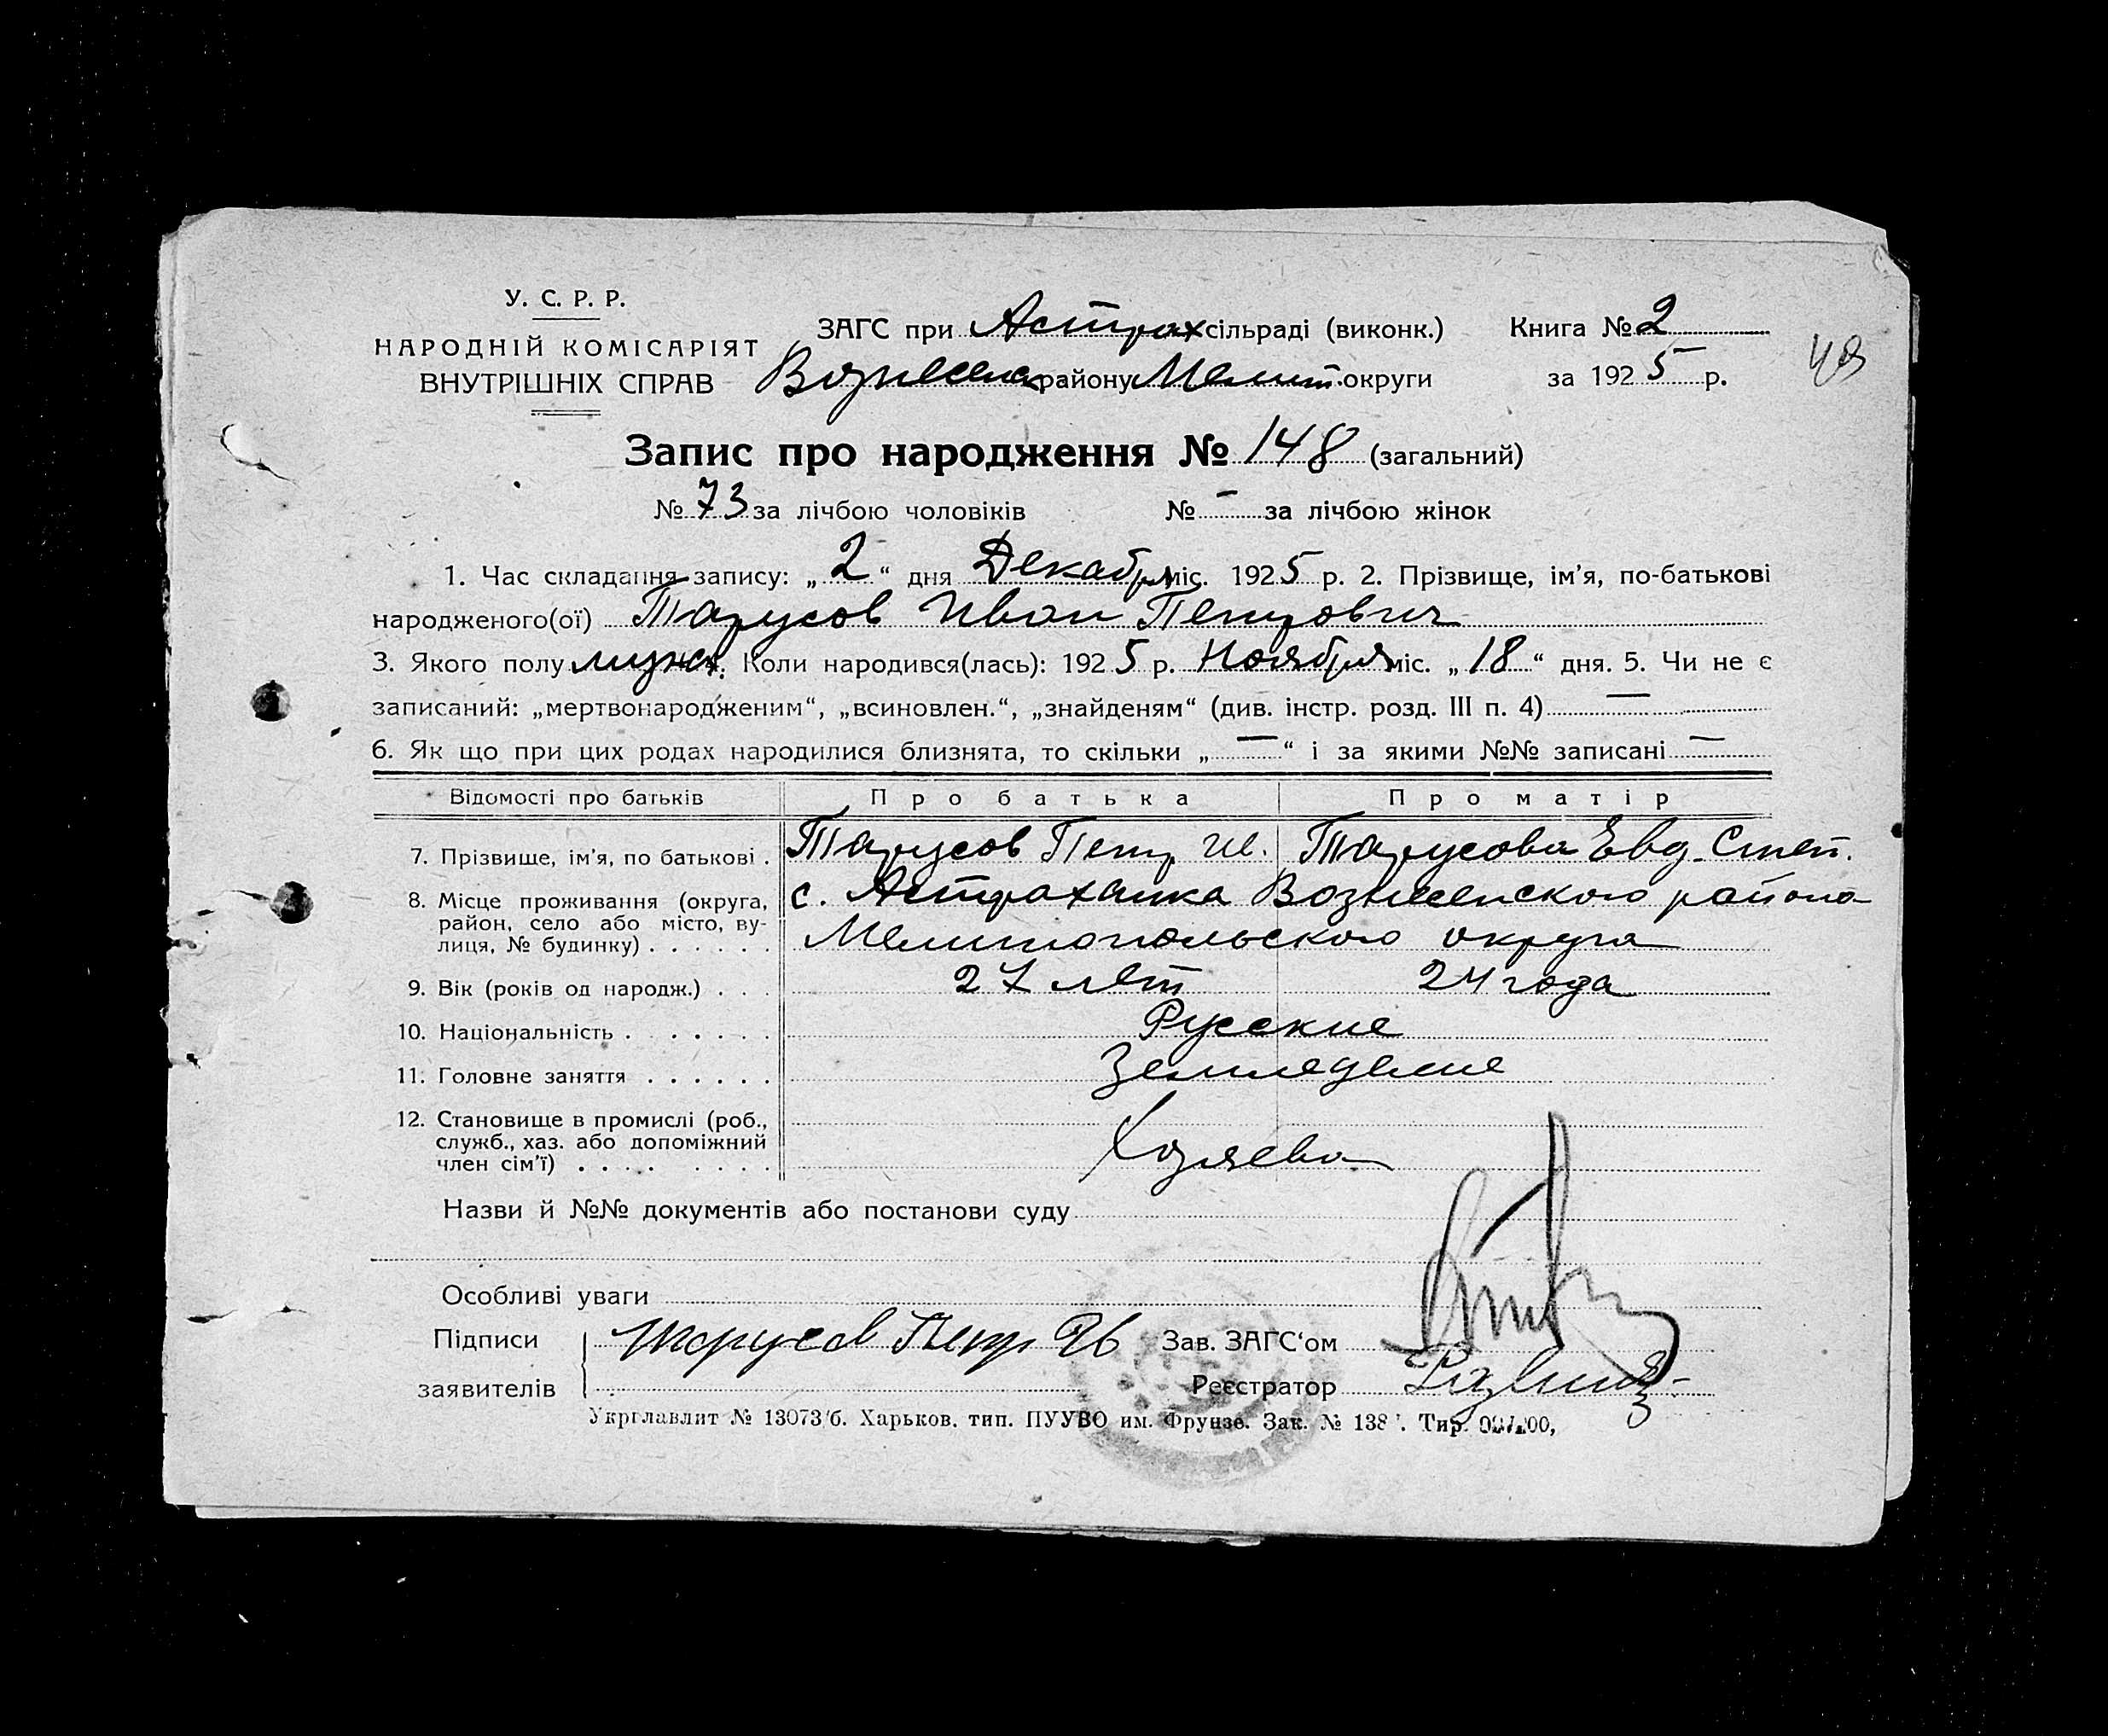 У. С. Р. Р.
НАРОДНІЙ КОМІСАРІЯТ
ВНУТРІШНІХ СПРАВ
ЗАГС при Астрах сільраді (виконк.) Книга № 2
Вознесенск району Мелит. округи за 1925 р.
48
Запис про народження № 148 (загальний)
№ 73 за лічбою чоловіків № — за лічбою жінок
1. Час складання запису: „2“ дня Декабря міс. 1925 р. 2. Прізвище, ім'я, по-батькові
народженого(ої) Тарусов Иван Петрович
3. Якого полу мужск. Коли народився(лась): 1925 р. Ноября міс. „18“ дня. 5. Чи не є
записаний: „мертвонародженим“, „всиновлен.“, „знайденям“ (див. інстр. розд. III п. 4) —
6. Як що при цих родах народилися близнята, то скільки „—“ і за якими №№ записані —
Відомості про батьків Про батька Про матір
7. Прізвище, ім'я, по батькові . Тарусов Петр Ив. Тарусова Евд. Степ.
8. Місце проживання (округа, район, село або місто, вулиця, № будинку) . . . . . . с. Астраханка Вознесенского района
Мелитопольского округа
9. Вік (років од народж.) . . . 27 лет 24 года
10. Національність . . . . . . . Русские
11. Головне заняття . . . . . . Земледелие
12. Становище в промислі (роб., служб., хаз. або допоміжний член сім'ї) . . . . . . . . Хозяева
Назви й №№ документів або постанови суду
Особливі уваги
Підписи Тарусов Петр Ив Зав. ЗАГС'ом
заявителів Реєстратор
Укрглавлит № 13073/б. Харьков. тип. ПУУВО им. Фрунзе. Зак. № 138 . Тир.